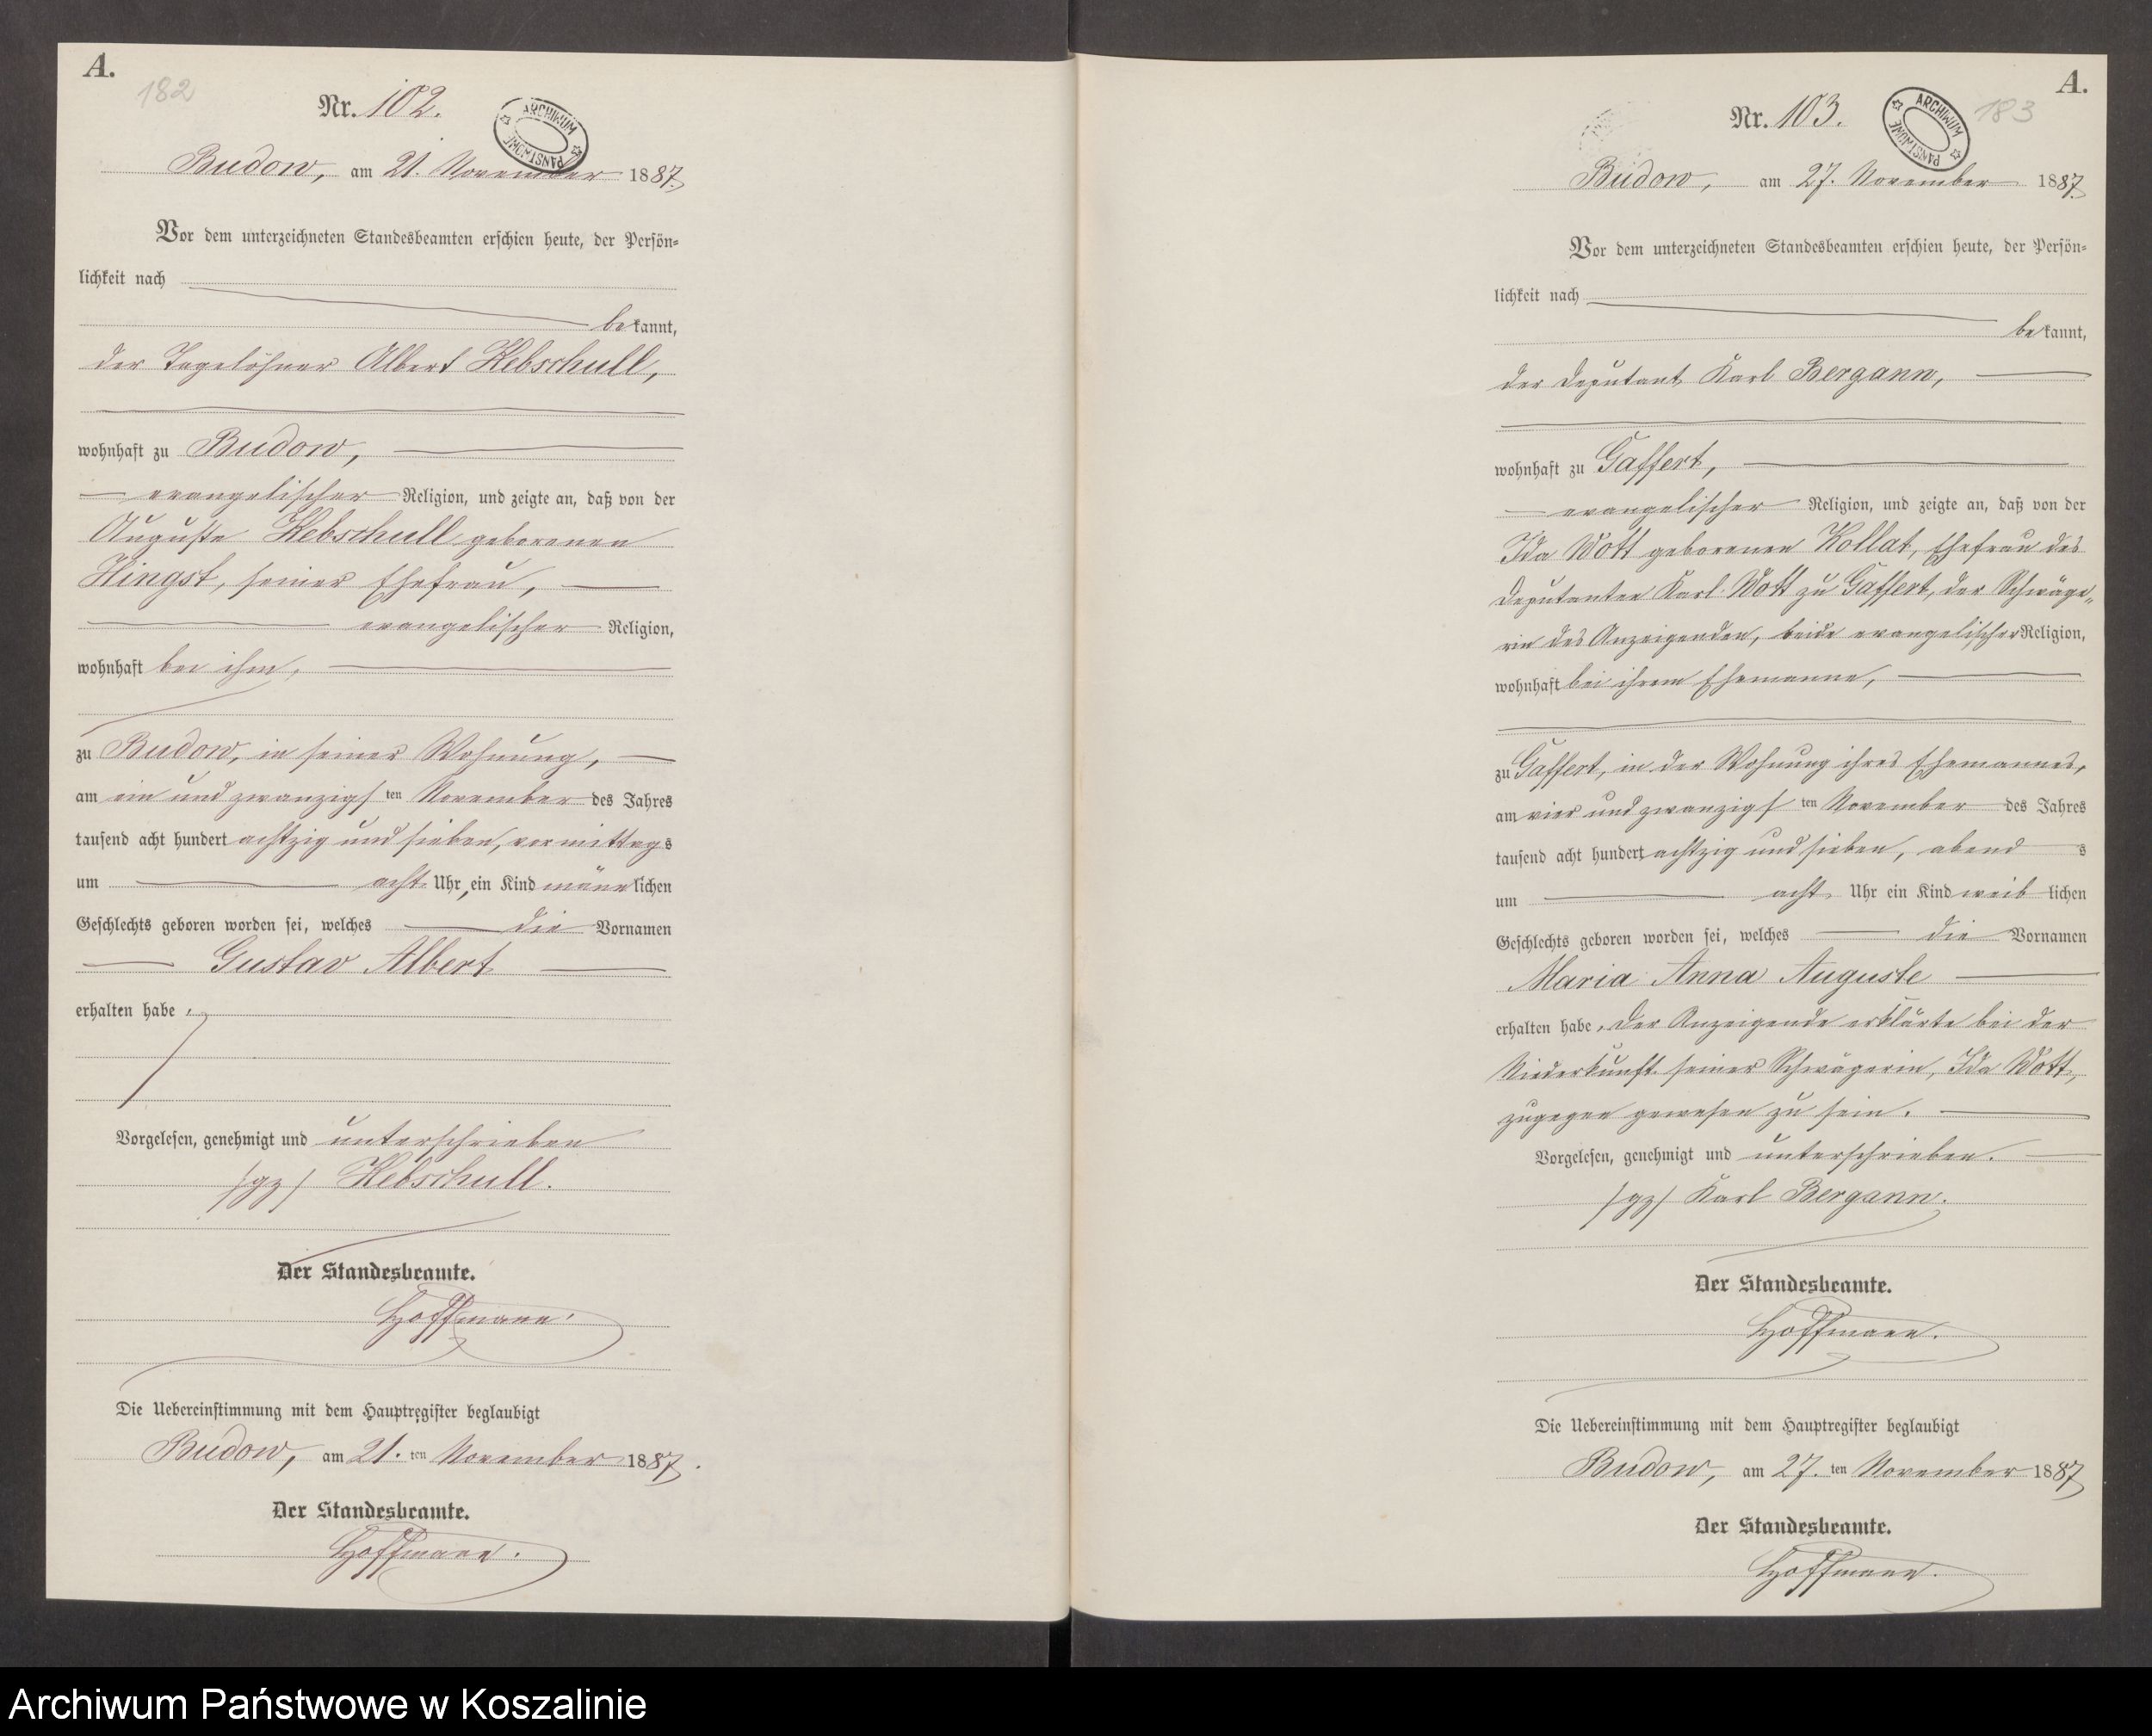 A.
182
Nr. 102.
ARCHIWUM PAŃSTWOWE
Budow, am 21. November 1887.
Vor dem unterzeichneten Standesbeamten erschien heute, der Persön=
lichkeit nach
bekannt,
der Tagelöhner Albert Kebschull,
wohnhaft zu Budow,
evangelischer Religion, und zeigte an, daß von der
Auguste Kebschull geborenen
Hingst, seiner Ehefrau,
evangelischer Religion,
wohnhaft bei ihm,
zu Budow, in seiner Wohnung,
am ein und zwanzigsten November des Jahres
tausend acht hundert achtzig und sieben, vormittags
um acht Uhr, ein Kind männlichen
Geschlechts geboren worden sei, welches die Vornamen
Gustav Albert
erhalten habe.
Vorgelesen, genehmigt und unterschrieben
/gz/ Kebschull.
Der Standesbeamte.
Hoffmann.
Die Uebereinstimmung mit dem Hauptregister beglaubigt
Budow, am 21. ten November 1887.
Der Standesbeamte.
Hoffmann.
A.
183
Nr. 103.
ARCHIWUM PAŃSTWOWE
Budow, am 27. November 1887.
Vor dem unterzeichneten Standesbeamten erschien heute, der Persön=
lichkeit nach
bekannt,
der Deputant Karl Bergann,
wohnhaft zu Gaffert,
evangelischer Religion, und zeigte an, daß von der
Ida Wott geborenen Kollat, Ehefrau des
Deputanten Karl Wott zu Gaffert, der Schwäge„
rin des Anzeigenden, beide evangelischer Religion,
wohnhaft bei ihrem Ehemanne,
zu Gaffert, in der Wohnung ihres Ehemannes,
am vier und zwanzigsten November des Jahres
tausend acht hundert achtzig und sieben, abends
um acht Uhr ein Kind weiblichen
Geschlechts geboren worden sei, welches die Vornamen
Maria Anna Auguste
erhalten habe. Der Anzeigende erklärte bei der
Niederkunft seiner Schwägerin, Ida Wott,
zugegen gewesen zu sein.
Vorgelesen, genehmigt und unterschrieben.
/gz/ Karl Bergann.
Der Standesbeamte.
Hoffmann.
Die Uebereinstimmung mit dem Hauptregister beglaubigt
Budow, am 27. ten November 1887
Der Standesbeamte.
Hoffmann.
Archiwum Państwowe w Koszalinie